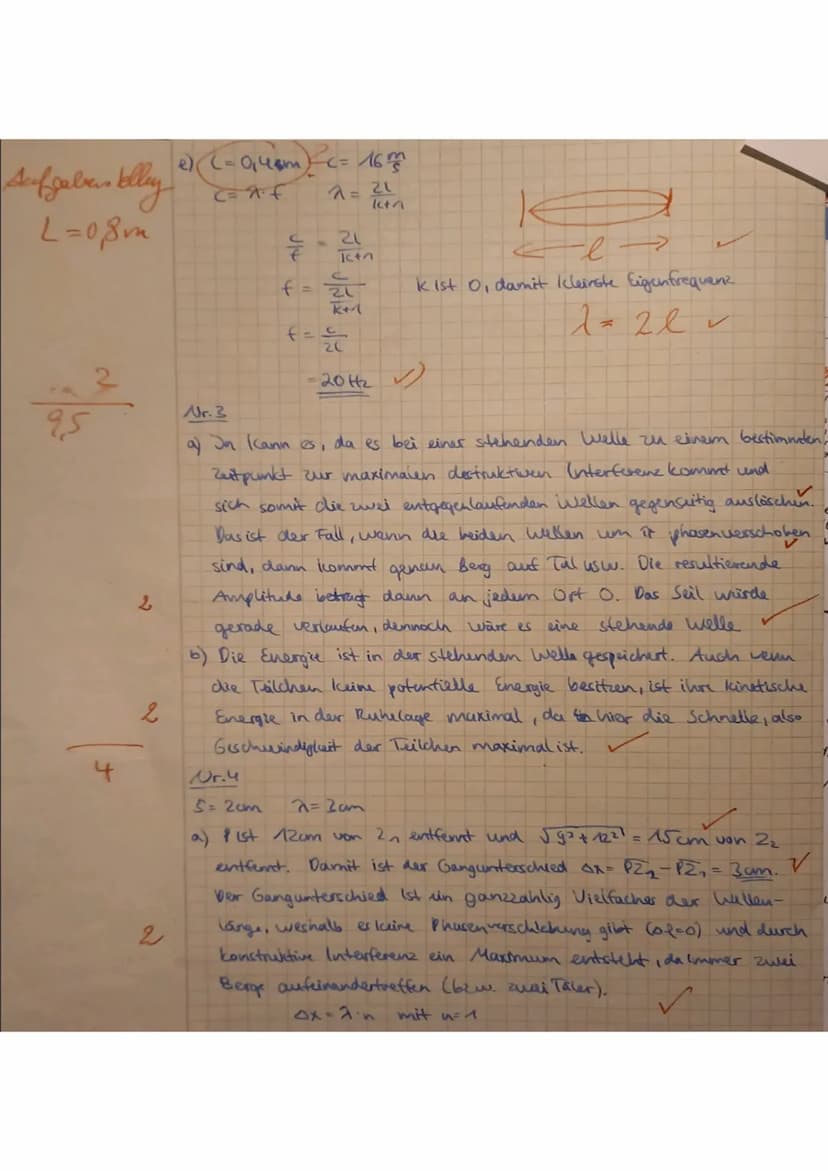 Aufgabenstellung
L = 0,8m
e) L = 0,4m ? c = 16 m/s
c = λ · f λ = 2l/k+1
c/f = 2l/k+1
l
f = c/(2l/k+1) k ist 0, damit kleinste Eigenfrequenz
λ = 2l
f = c/2l
= 20 Hz
3
9,5
Nr. 3
a) Ja kann es, da es bei einer stehenden Welle zu einem bestimmten
Zeitpunkt zur maximalen destruktiven Interferenz kommt und
sich somit die zwei entgegenlaufenden Wellen gegenseitig auslöschen.
Das ist der Fall, wenn die beiden Wellen um π phasenverschoben
sind, dann kommt genau Berg auf Tal usw. Die resultierende
2 Amplitude beträgt dann an jedem Ort 0. Das Seil würde
gerade verlaufen, dennoch wäre es eine stehende Welle
b) Die Energie ist in der stehenden Welle gespeichert. Auch wenn
die Teilchen keine potentielle Energie besitzen, ist ihre kinetische
2 Energie in der Ruhelage maximal, da hier die Schnelle, also
Geschwindigkeit der Teilchen maximal ist.
4
Nr. 4
s = 2cm λ = 3cm
a) P ist 12cm von Z1 entfernt und √9²+12² = 15cm von Z2
entfernt. Damit ist der Gangunterschied Δx = PZ2 - PZ1 = 3cm.
Der Gangunterschied ist ein ganzzahlig Vielfaches der Wellen-
länge, weshalb es keine Phasenverschiebung gibt (Δφ=0) und durch
2 konstruktive Interferenz ein Maximum entsteht, da immer zwei
Berge aufeinandertreffen (bzw. zwei Täler).
Δx = λ · n mit n = 1